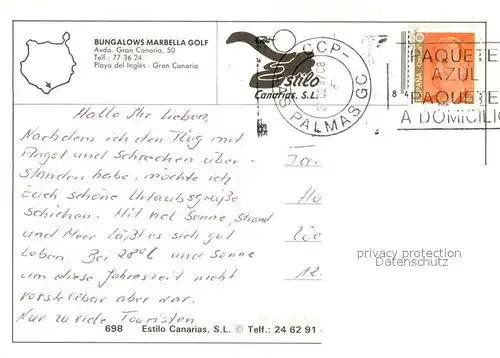 BUNGALOWS MARBELLA GOLF
Avda. Gran Canaria, 50
Telf.: 77 36 24
Playa del Inglés - Gran Canaria
Estilo
Canarias, S.L.
CCP-
PALMAS GC
PAQUETE
AZUL
PAQUETE
A DOMICILIO
ESPAÑA
Hallo Ihr Lieben,
Nachdem ich den Flug mit
Angst und Schrecken über-
standen habe, möchte ich
Euch schöne Urlaubsgrüße
schicken. Mit viel Sonne, Strand
und Meer läßt es sich gut
leben. Bei 28°C und Sonne
um diese Jahreszeit nicht
vorstellbar aber war.
Nur zu viele Touristen
Fa.
privacy protection
Datenschutz
698 Estilo Canarias, S.L. © Telf.: 24 62 91 -